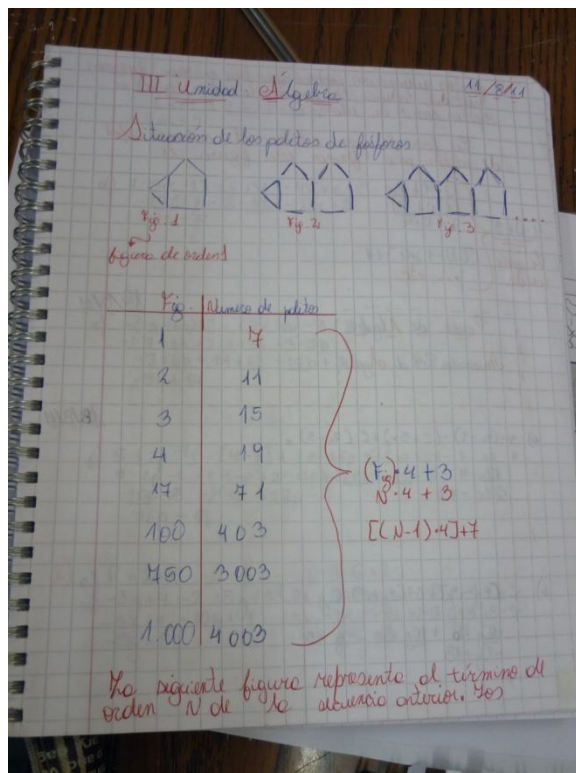 III Unidad Álgebra
11/8/11
Situación de los palitos de fósforos
Fig. 1
Fig. 2
Fig. 3
....
figura de orden 1
Fig. Número de palitos
1 7
2 11
3 15
4 19
17 71
100 403
750 3003
1.000 4003
(Fig)·4+3
N·4+3
[(N-1)·4]+7
La siguiente figura representa al término de
orden N de la secuencia anterior. Los